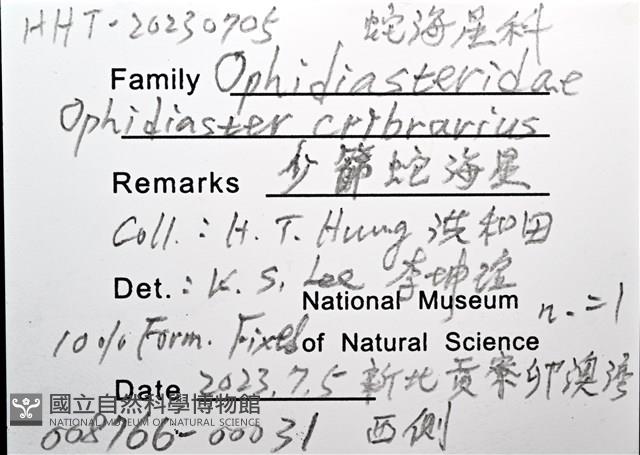 HHT-20230705 蛇海星科
Family Ophidiasteridae
Ophidiaster cribrarius
Remarks 多篩蛇海星
Coll.: H. T. Hung 洪和田
Det.: K. S. Lee 李坤瑄
National Museum n.=1
10% Form. Fixed of Natural Science
Date 2023.7.5 新北貢寮卯澳灣
國立自然科學博物館
NATIONAL MUSEUM OF NATURAL SCIENCE
008766-00031 西側